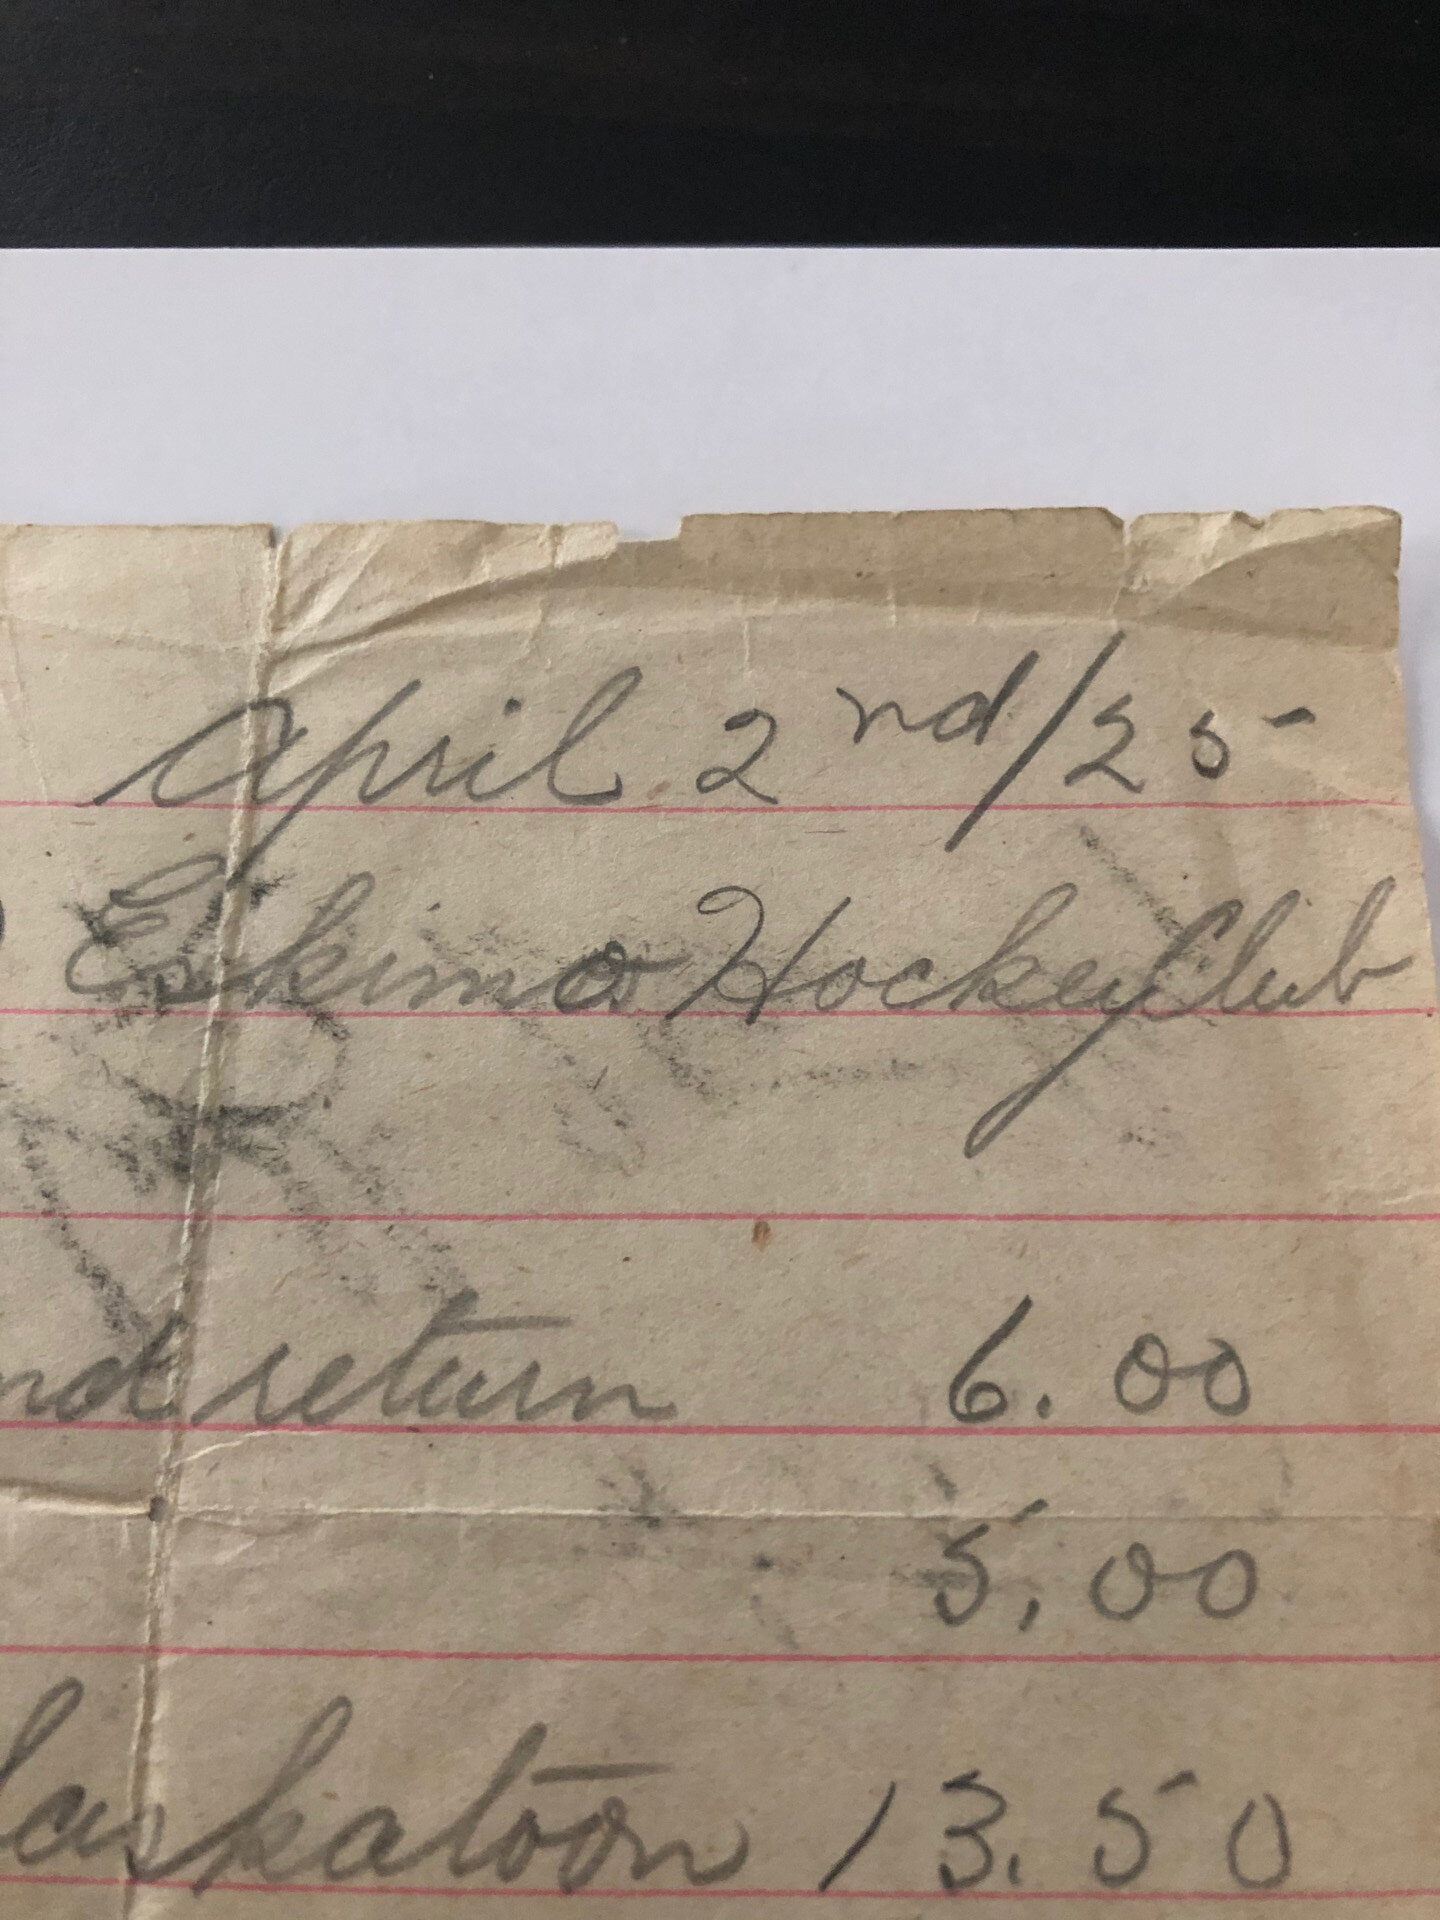 April 2nd/25
Eskimo Hockey Club
nd return 6.00
5.00
Saskatoon 13.50